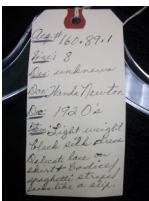 Acq# 160.89.1
Size: 8
unknown
Don: Newton
1920's
Light weight
black silk dress
Delicate lace on
skirt & bodice/
spaghetti straps/
looks like a slip